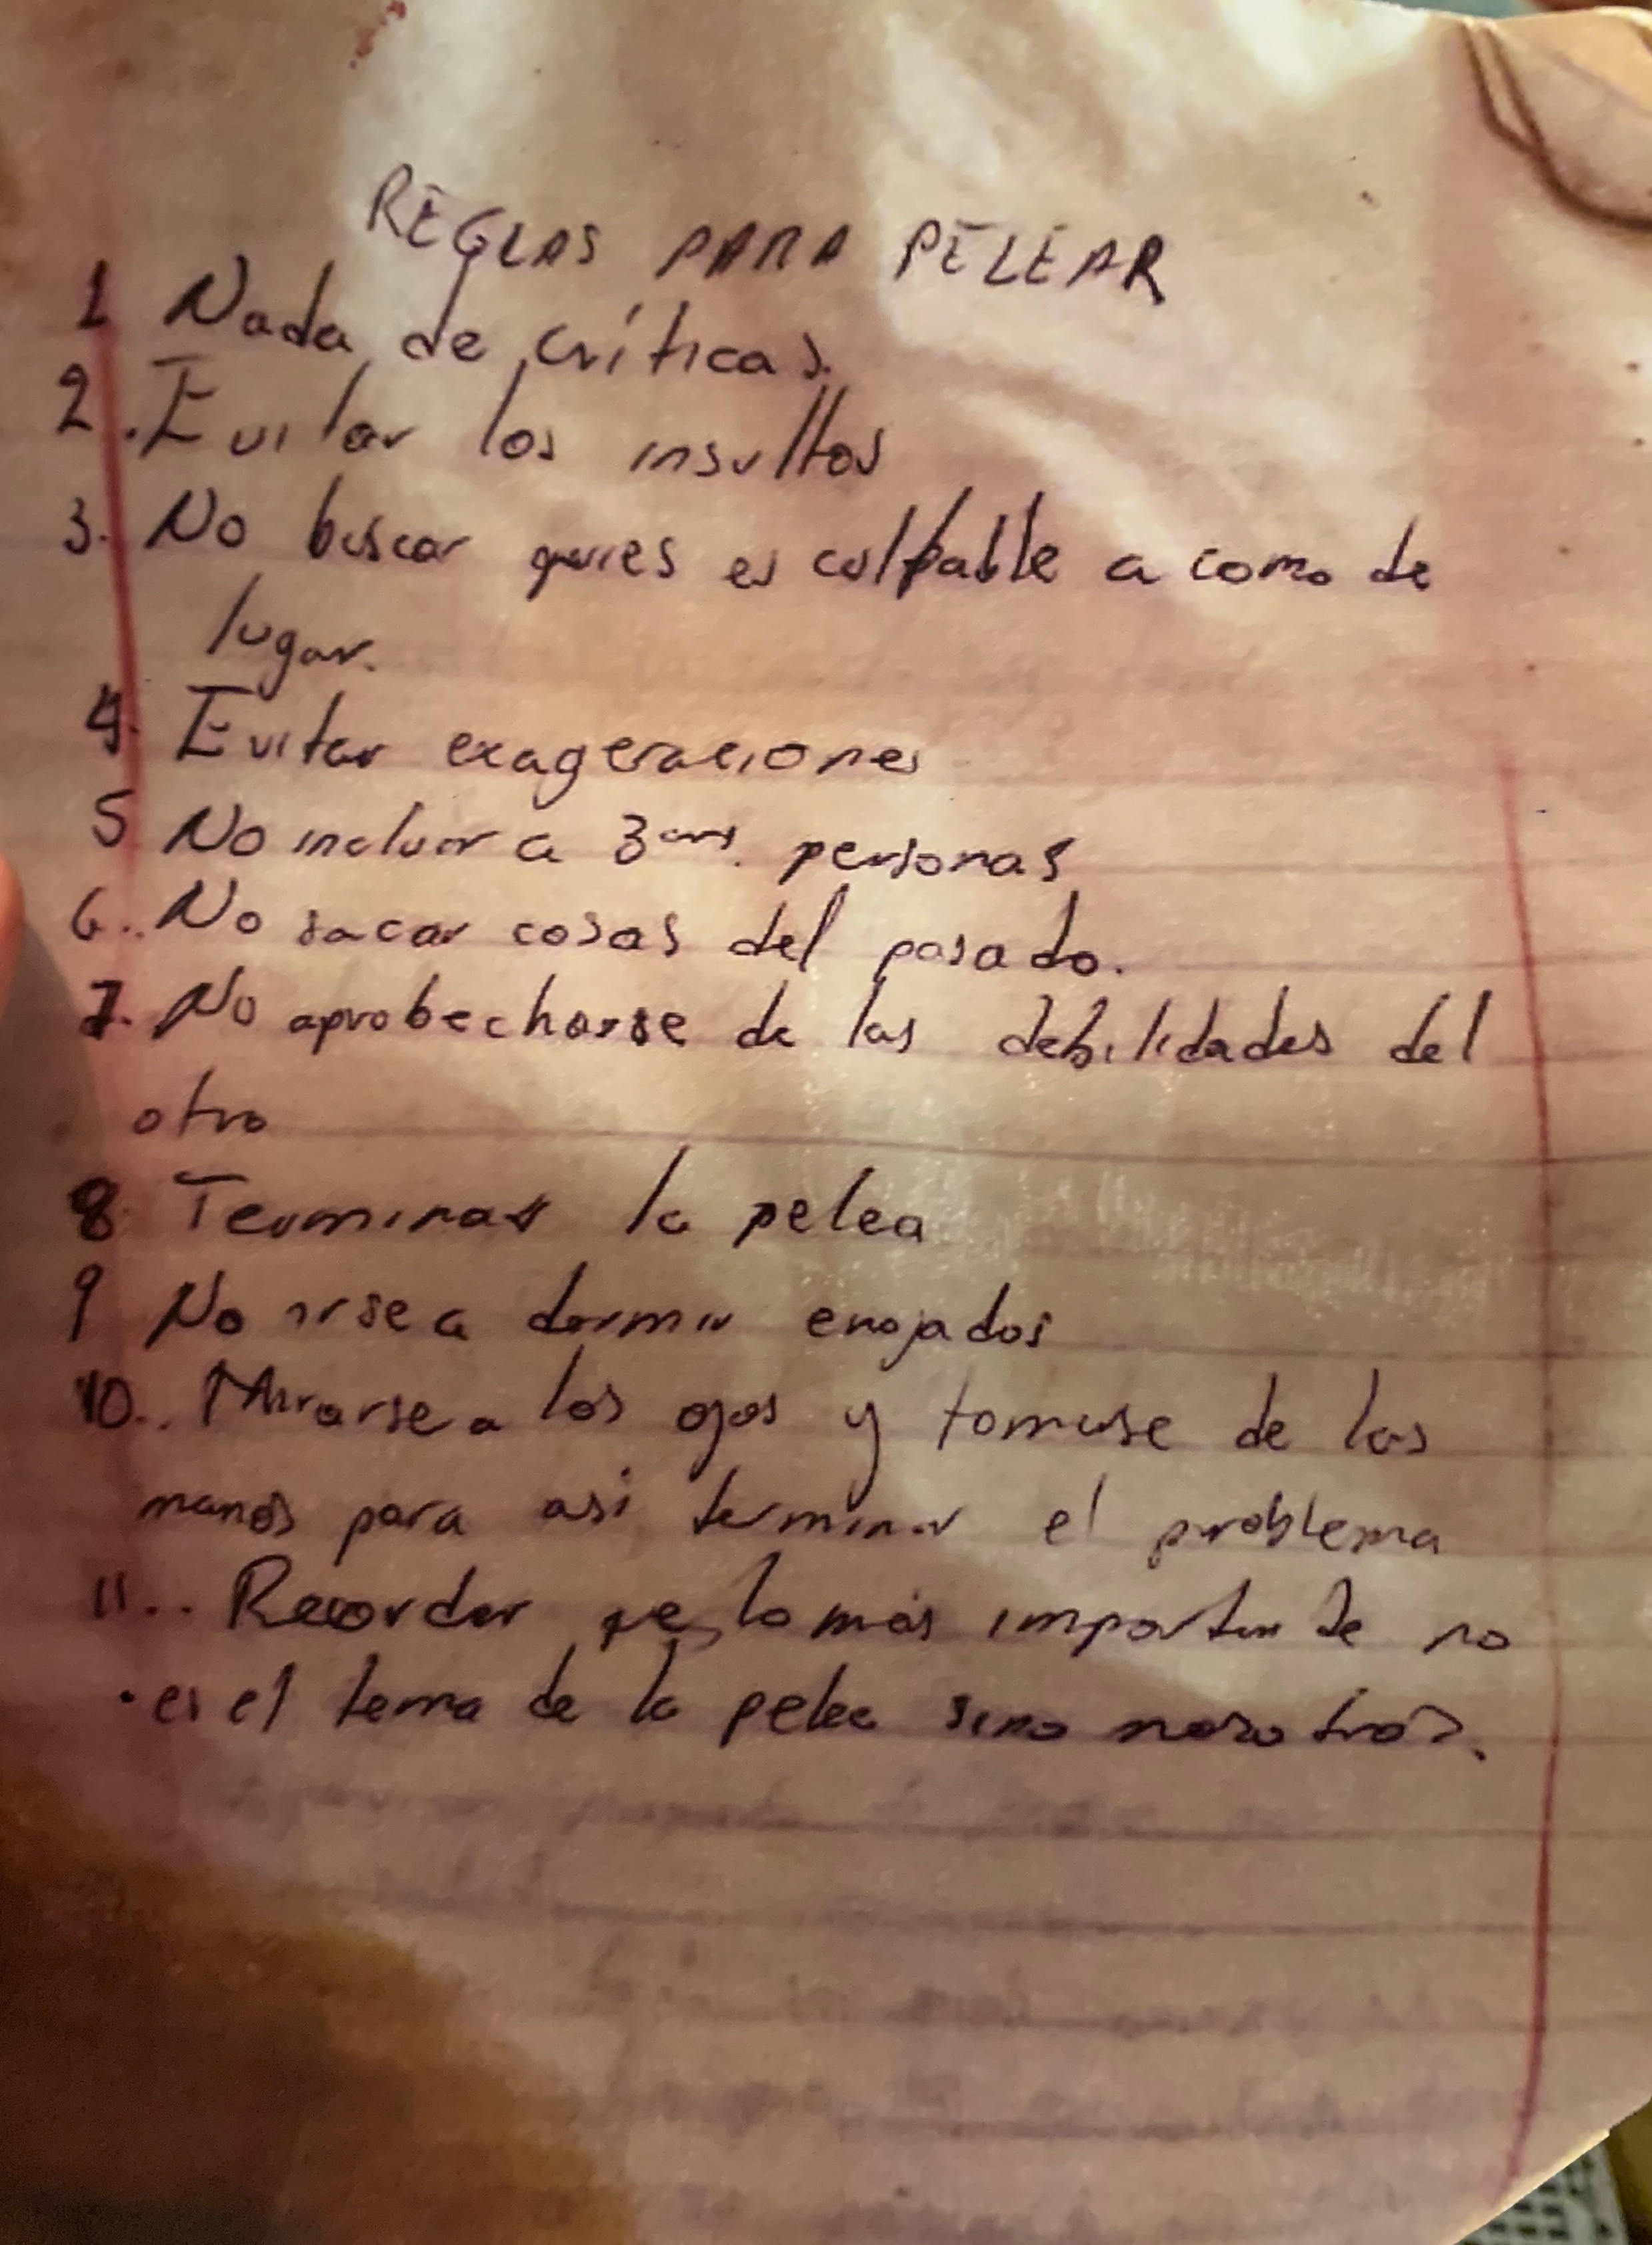 REGLAS PARA PELEAR
1 Nada de críticas.
2. Evitar los insultos
3. No buscar quies es culpable a como de
lugar.
4. Evitar exageraciones
5 No incluir a 3ras. personas
6.. No sacar cosas del pasado.
7. No aprobecharse de las debilidades del
otro
8 Terminar la pelea
9 No irse a dormir enojados
10.. Mirarse a los ojos y tomarse de las
manos para asi terminar el problema
11... Recordar que lo más importante no
es el tema de la pelea sino nosotros.